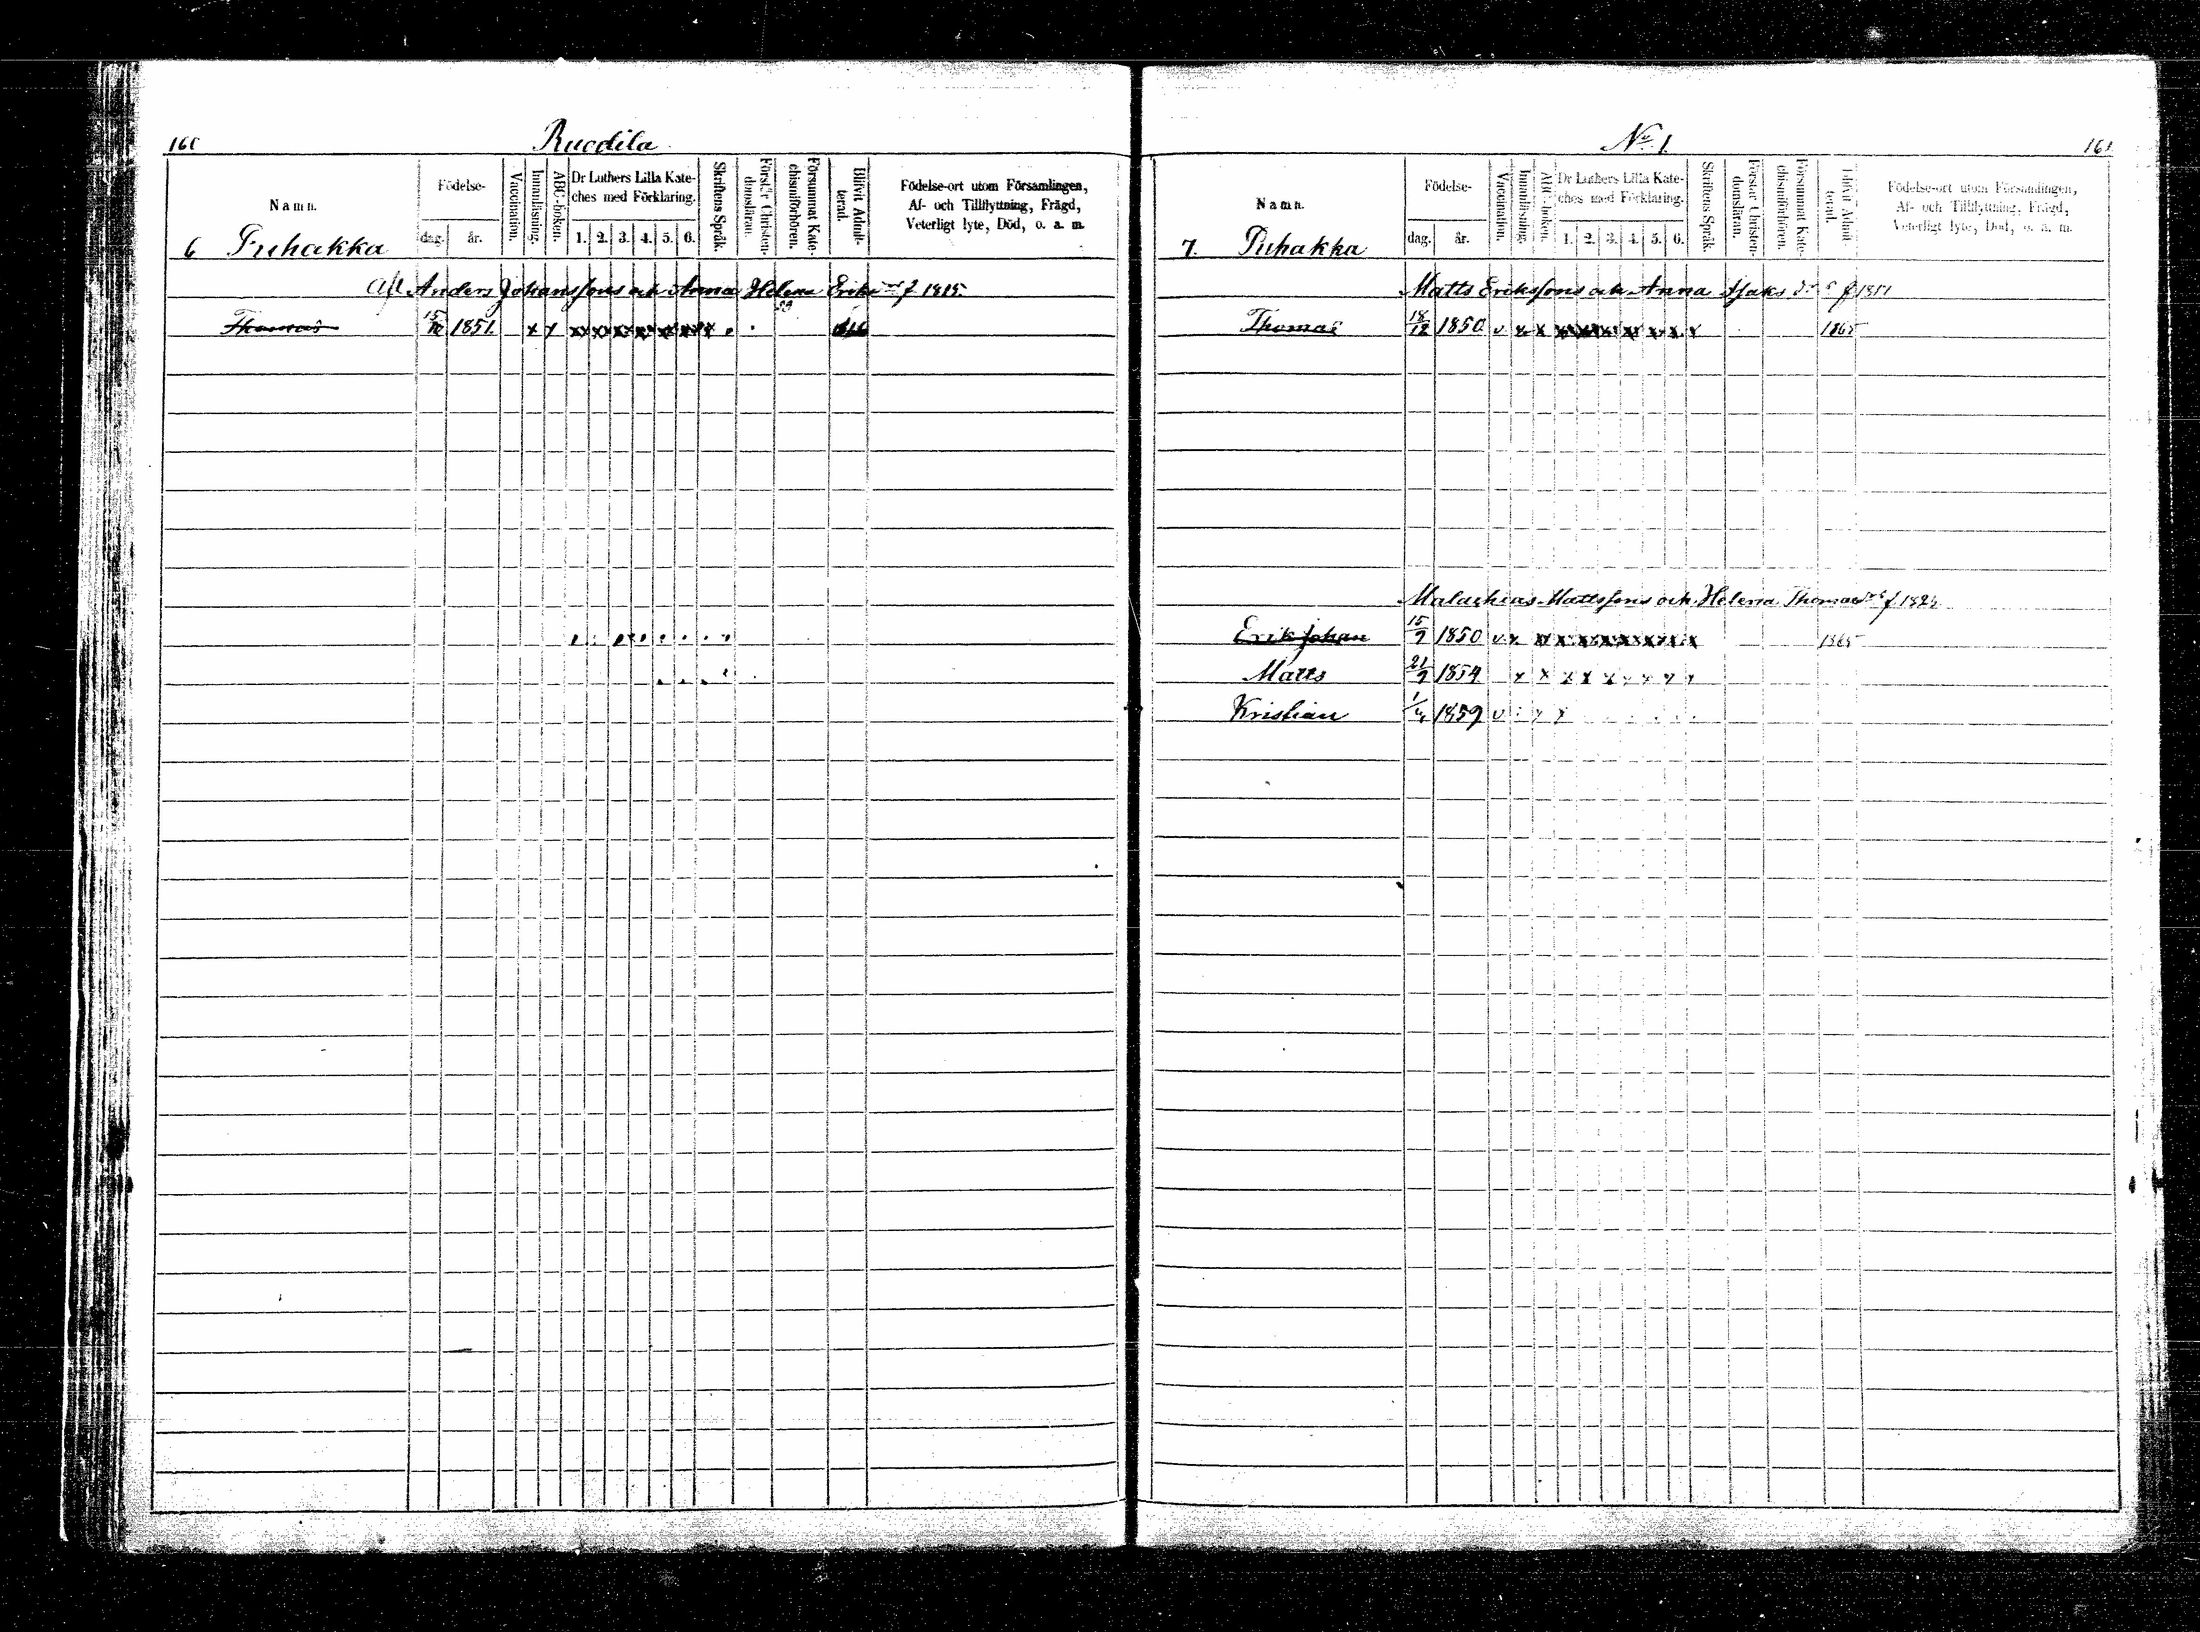 160
Ruodila
Namn.
Födelse-
dag.
år.
Vaccination.
Innanläsning.
ABC-boken.
Dr Luthers Lilla Kate-
ches med Förklaring.
1. 2. 3. 4. 5. 6.
Skriftens Språk.
Förstår Christen-
domsläran.
Försummat Kate-
chismiförhören.
Blifvit Admit-
terad.
Födelse-ort utom Församlingen,
Af- och Tillflyttning, Frägd,
Veterligt lyte, Död, o. a. m.
6 Puhakka
Afl Anders Johanssons och Anna Helena Eriks f 1815.
Thomas 15/10 1851.
Nº 1.
161
Namn.
Födelse-
dag.
år.
Vaccination.
Innanläsning.
ABC-boken.
Dr Luthers Lilla Kate-
ches med Förklaring.
1. 2. 3. 4. 5. 6.
Skriftens Språk.
Förstår Christen-
domsläran.
Försummat Kate-
chismiförhören.
Blifvit Admit-
terad.
Födelse-ort utom Församlingen,
Af- och Tillflyttning, Frägd,
Veterligt lyte, Död, o. a. m.
7. Puhakka
Matts Erikssons och Anna Isaks drs f 1811
Thomas 18/12 1850 v x x 1865
Malachias Mattssons och Helena Thomas drs f
Erik Johan 15/9 1850 v x 1865
Matts 21/9 1854 x x x x x
Kristian 1859 v